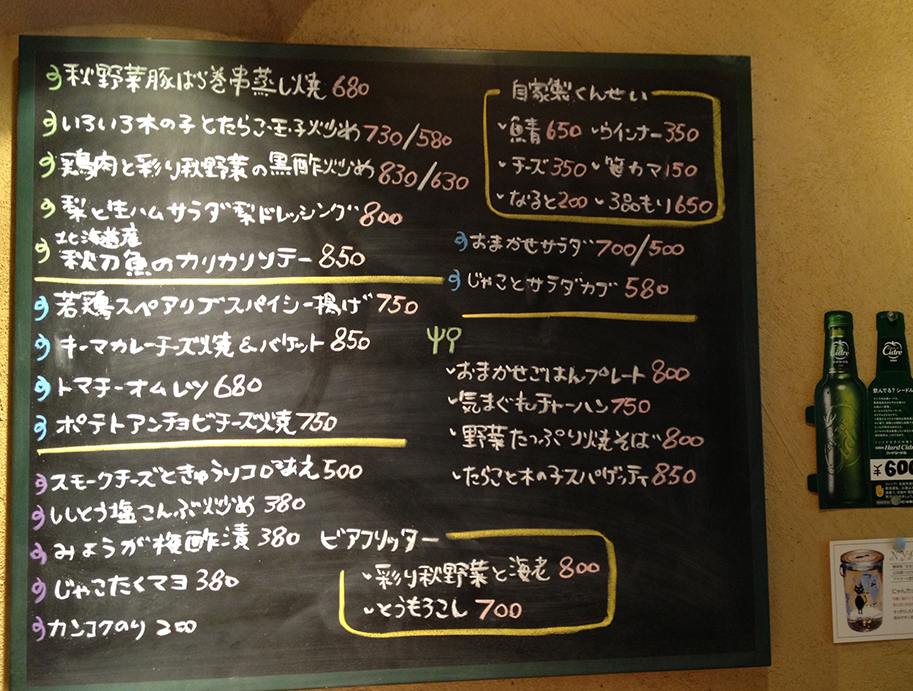 秋野菜豚ばら巻串蒸し焼 680
いろいろ木の子とたらこ玉子炒め 730/580
鶏肉と彩り秋野菜の黒酢炒め 830/630
梨と生ハムサラダ梨ドレッシング 800
北海道産
秋刀魚のカリカリソテー 850
若鶏スペアリブスパイシー揚げ 750
キーマカレーチーズ焼&バゲット 850
トマチーオムレツ 680
ポテトアンチョビチーズ焼 750
スモークチーズときゅうりコロあえ 500
ししとう塩こんぶ炒め 380
みょうが梅酢漬 380
じゃこたくマヨ 380
カンコクのり 200
自家製くんせい
鯖 650 ウインナー 350
チーズ 350 笹カマ 150
なると 200 3品もり 650
おまかせサラダ 700/500
じゃことサラダカブ 580
おまかせごはんプレート 800
気まぐれチャーハン 750
野菜たっぷり焼そば 800
たらこと木の子スパゲッティ 850
ビアフリッター
彩り秋野菜と海老 800
とうもろこし 700
Cidre
Cidre
Hard Cidre
¥600